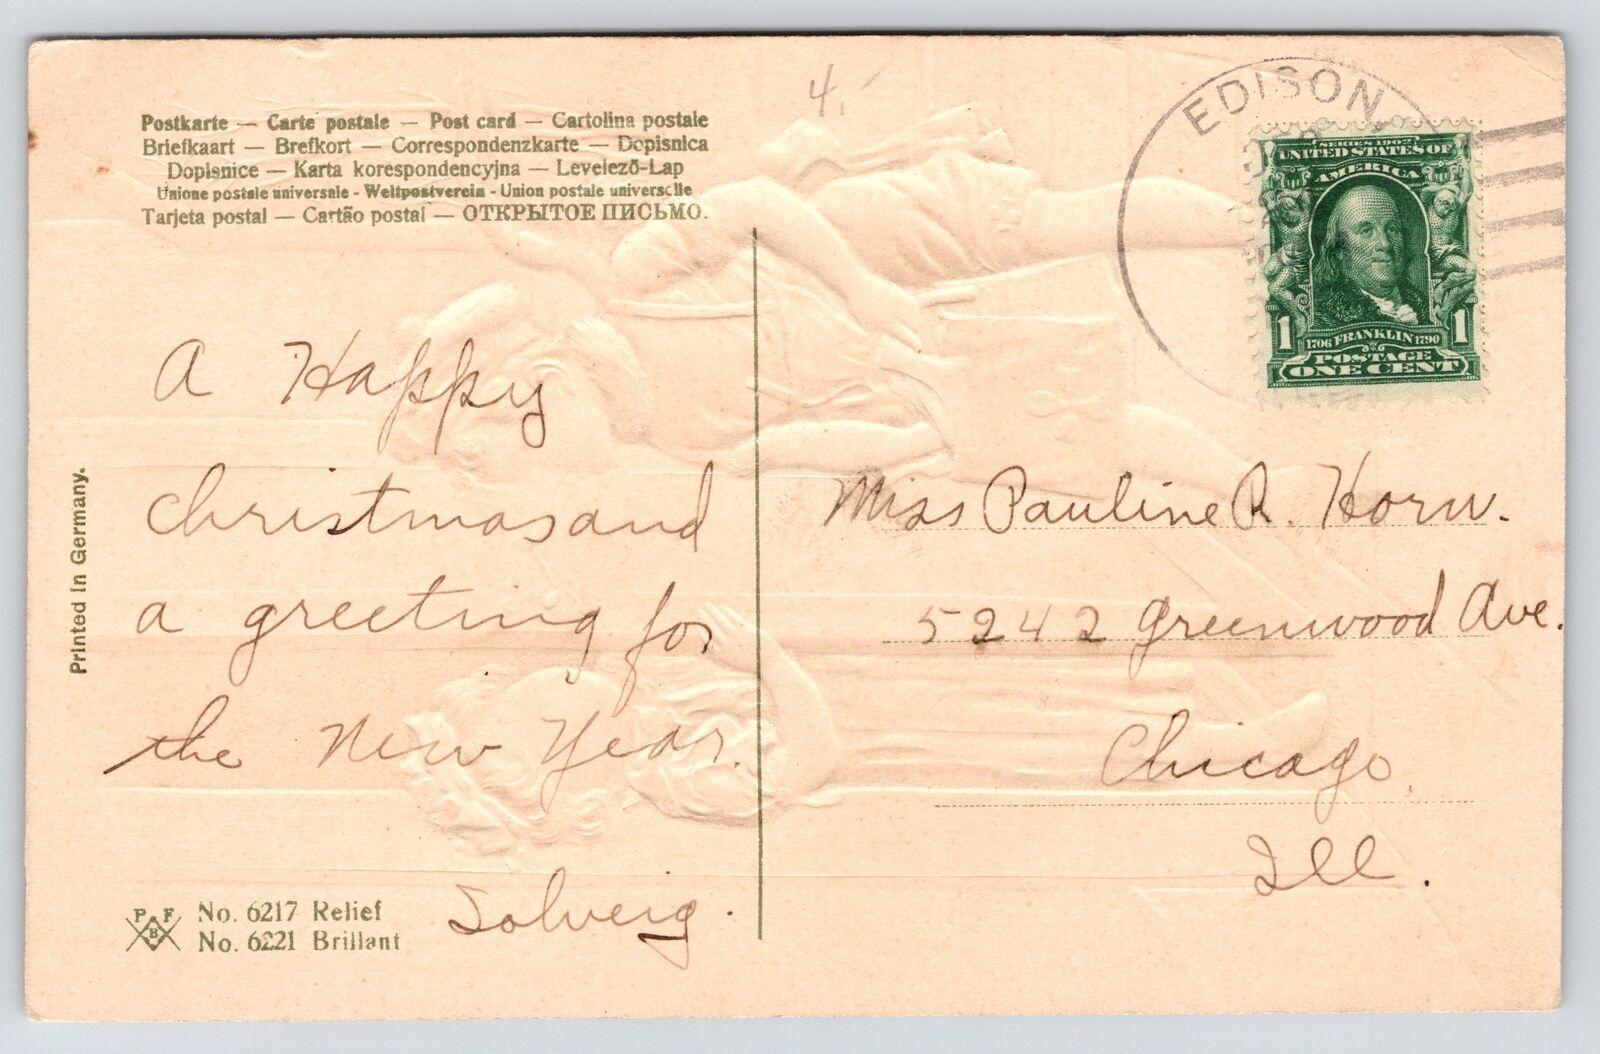 4.-
Postkarte — Carte postale — Post card — Cartolina postale
Briefkaart — Brefkort — Correspondenzkarte — Dopisnica
Dopisnice — Karta korespondencyjna — Levelező-Lap
Unione postale universale - Weltpostverein - Union postale universelle
Tarjeta postal — Cartão postal — ОТКРЫТОЕ ПИСЬМО.
EDISON
SERIES 1902
UNITED STATES OF
AMERICA
1 1
1706 FRANKLIN 1790
POSTAGE
ONE CENT
Printed in Germany.
A Happy
Christmas and
a greeting for
the New Year.
Solveig.
Miss Pauline R. Horn.
5242 Greenwood Ave.
Chicago,
Ill.
P F
B
No. 6217 Relief
No. 6221 Brillant